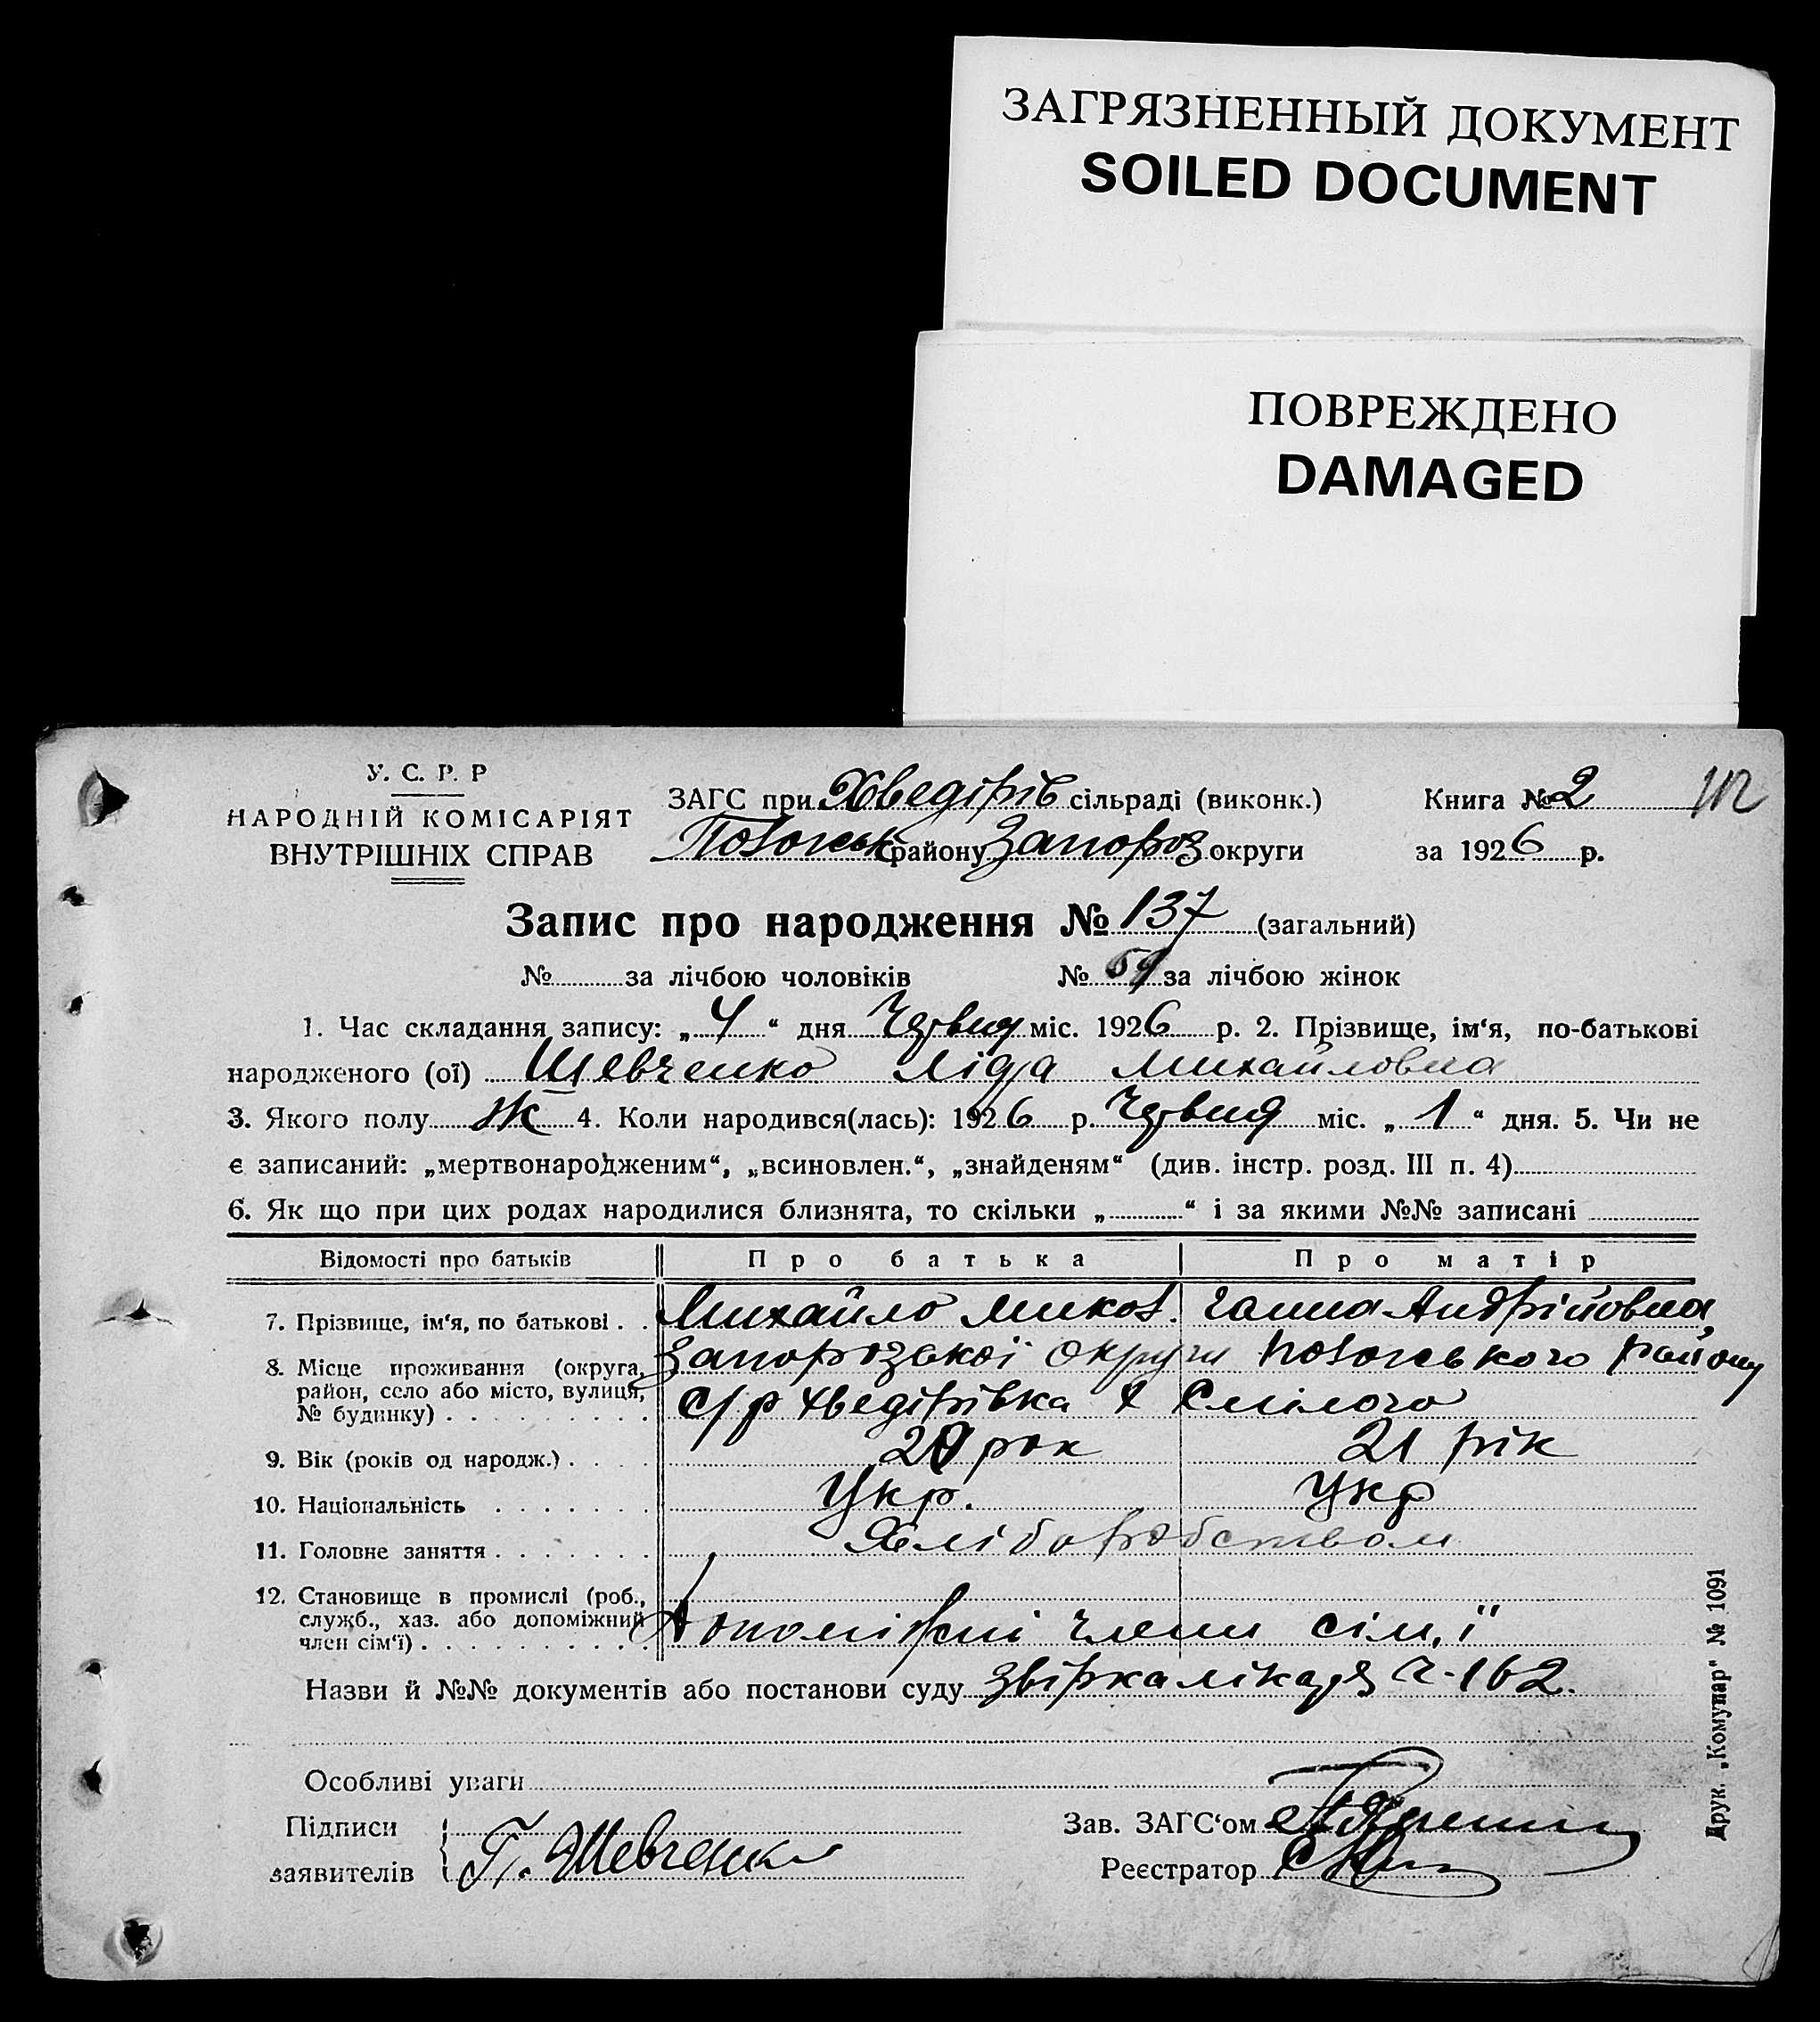 ЗАГРЯЗНЕННЫЙ ДОКУМЕНТ
SOILED DOCUMENT
ПОВРЕЖДЕНО
DAMAGED
У. С. Р. Р
НАРОДНІЙ КОМІСАРІЯТ
ВНУТРІШНІХ СПРАВ
ЗАГС при Хведірів сільраді (виконк.) Книга № 2
району Запороз округи за 1926 р.
Запис про народження № 137 (загальний)
№ за лічбою чоловіків № 59 за лічбою жінок
1. Час складання запису: „ 4 “ дня Червня міс. 1926 р. 2. Прізвище, ім‘я, по-батькові
народженого (ої) Шевченко Ліда Михайловна
3. Якого полу Ж 4. Коли народився(лась): 1926 р. Червня міс. „ 1 “ дня. 5. Чи не
є записаний: „мертвонародженим“, „всиновлен.“, „знайденям“ (див. інстр. розд. III п. 4)
6. Як що при цих родах народилися близнята, то скільки „ “ і за якими №№ записані
Відомості про батьків Про батька Про матір
7. Прізвище, ім‘я, по батькові . . Михайло Микол. Ганна Андрійовна,
8. Місце проживання (округа, район, село або місто, вулиця, № будинку) . Запорозької округи Пологського району
с/р Хведірівка х Смілого
9. Вік (років од народж.) . 20 рок 21 рік
10. Національність Укр. Укр
11. Головне заняття . Хліборобством
12. Становище в промислі (роб., служб., хаз. або допоміжний член сім‘ї) . Допоміжні члени сім,ї
Назви й №№ документів або постанови суду звірка лікаря ч-162.
Особливі уваги
Підписи
заявителів Г. Шевченко
Зав. ЗАГС‘ом
Реєстратор
Друк. „Комунар“ № 1091